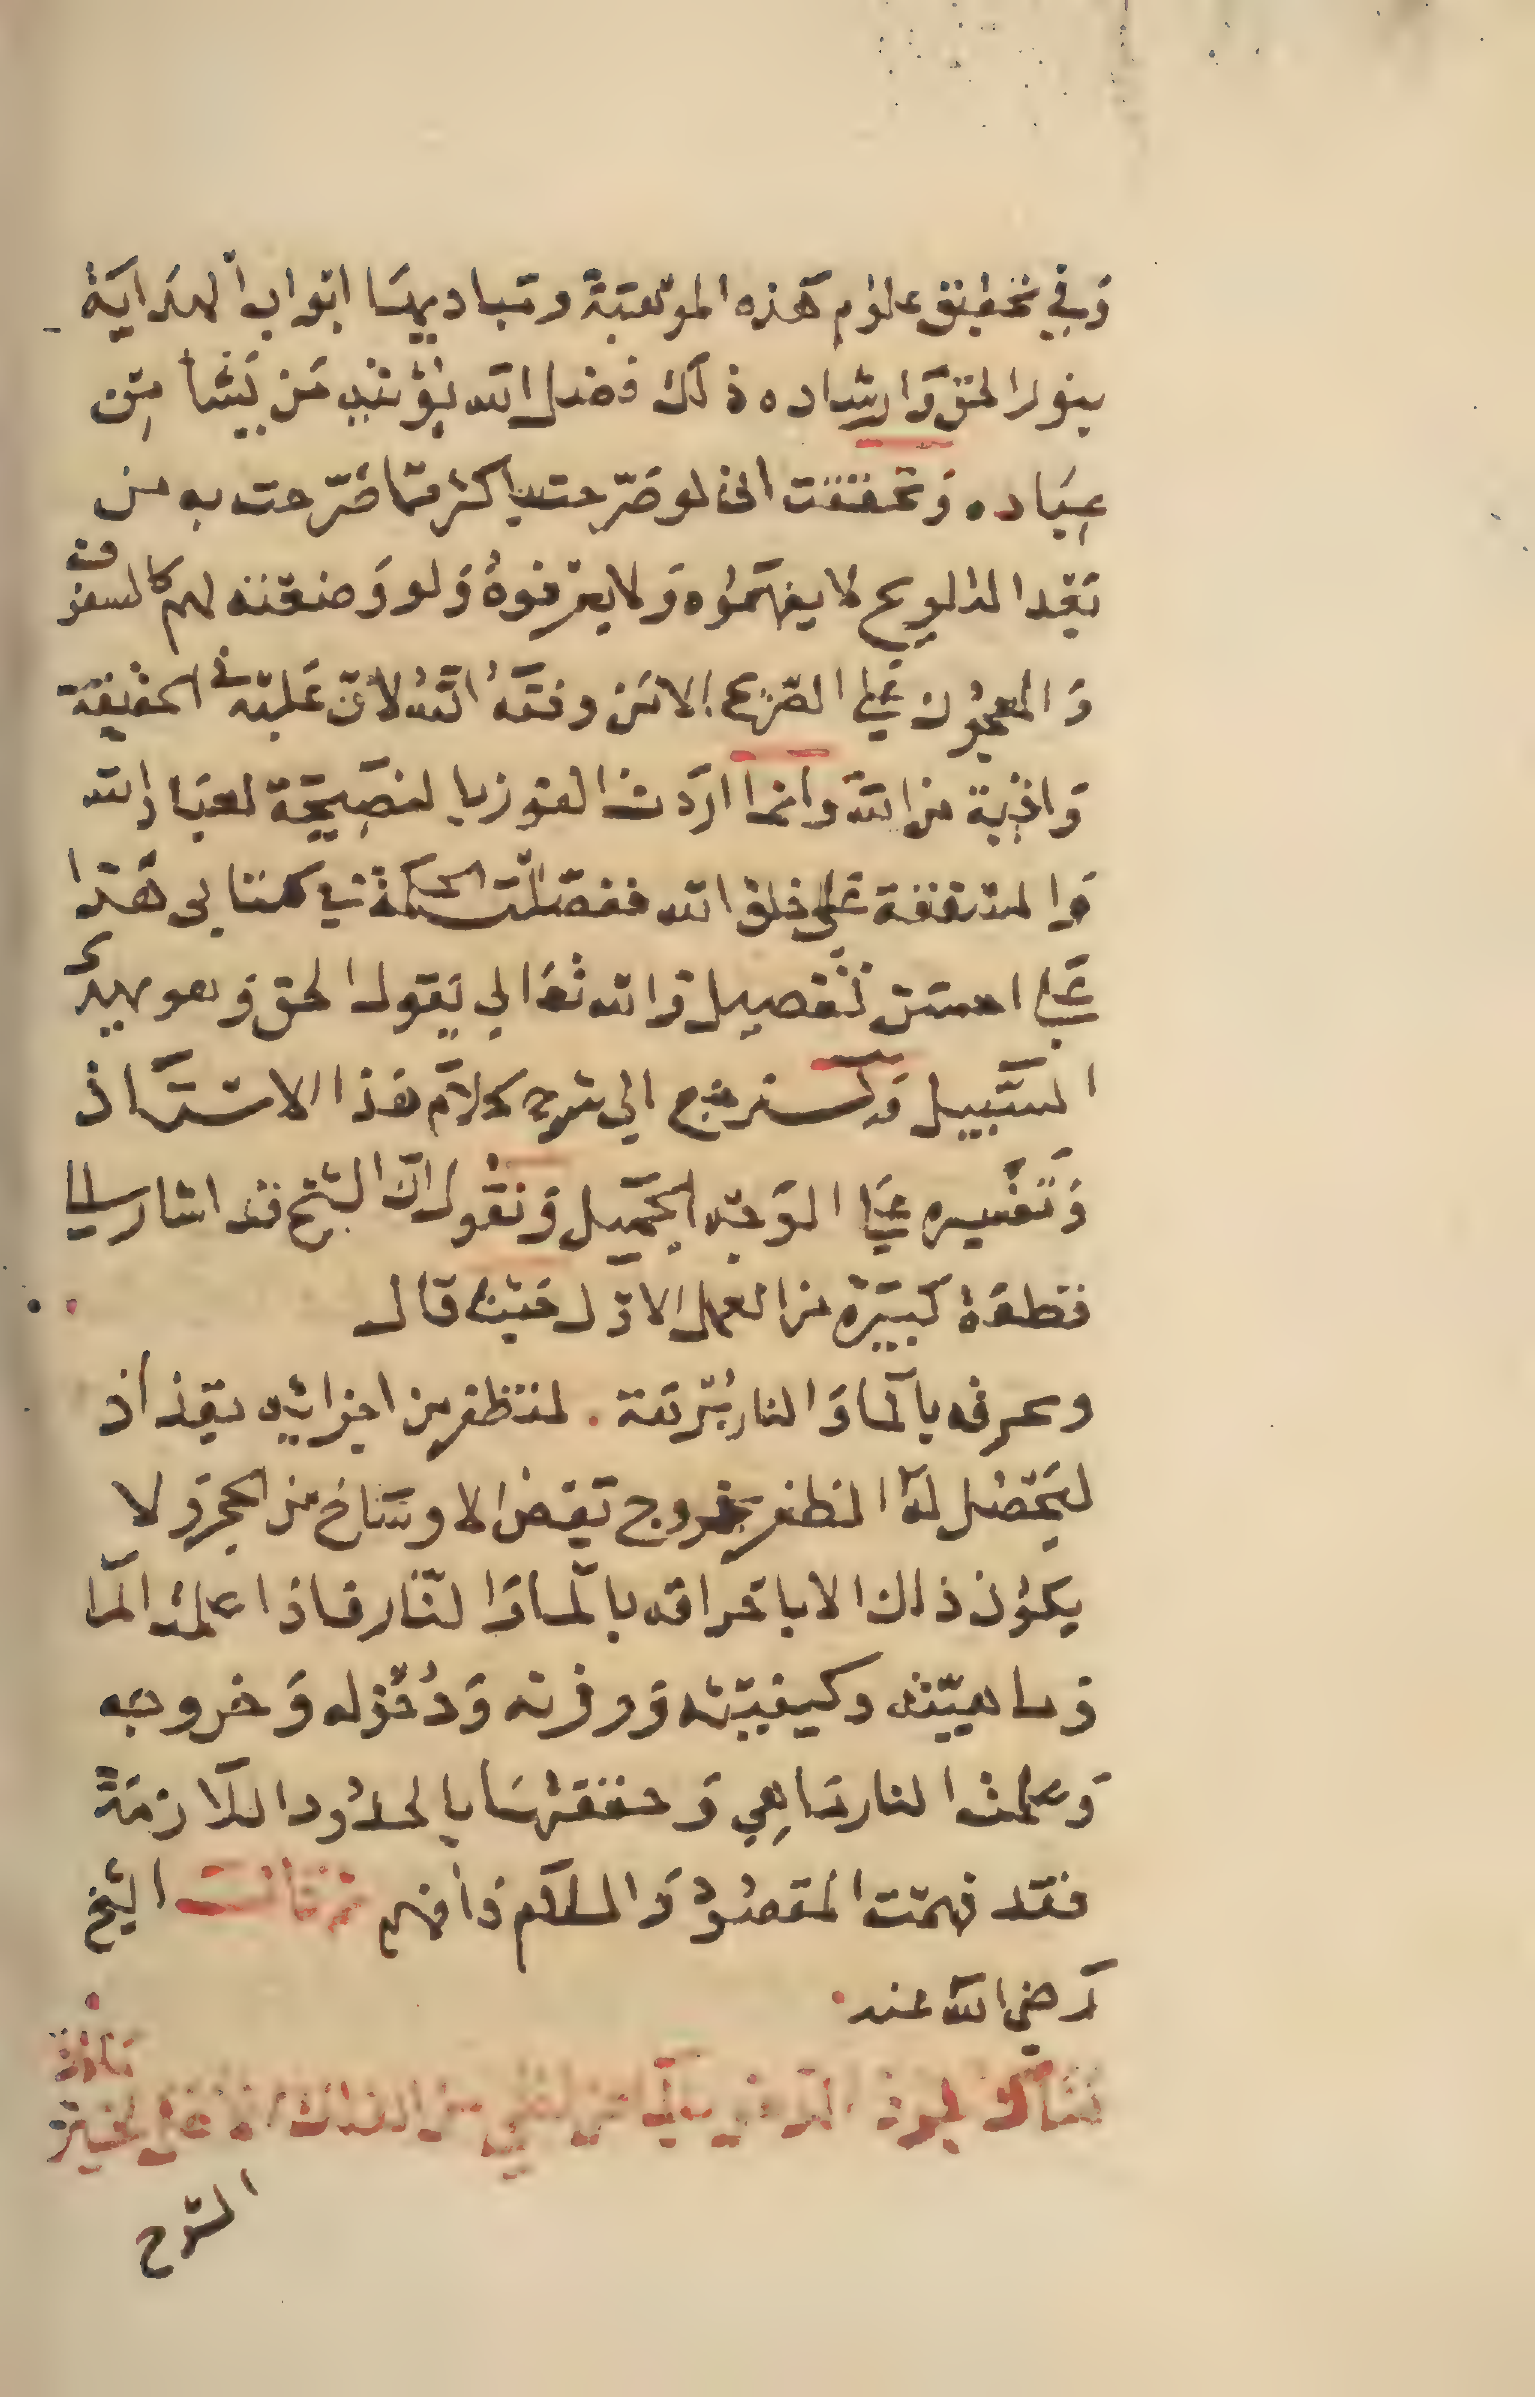 وفي تحقيق علوم هذه الموهبة ومباديها ابواب الهداية
بنور الحق وارشاده ذلك فضل الله يؤتيه من يشا من
عباده وتحققت اني لو صرحت باكثر مما صرحت به من
بعد التلويح لا يفهموه ولا يعرفوه ولو وضعته لهم كالسفرة
والمعجون علي الصريح الا من وفقه الله لان عليه في الحقيقة
واقية من الله وانما اردت الفوز بالنصيحة لعباد الله
والشفقة على خلق الله ففصلت الحكمة في كتابي هذا
علي احسن تفصيل والله تعالي يقول الحق وهو يهدي
السبيل ولنرجع الي شرح كلام هذا الاستاذ
وتفسيره علي الوجه الجميل ونقول ان الشيخ قد اشار الي
قطعة كبيرة من العمل الاول حيث قال
وحرقه بالما والنار برهة . لتظفر من اجزائه بقذاذ
ليحصل له الظفر بخروج بعض الاوساخ من الحجر ولا
يكون ذلك الا باحراقه بالما والنار فاذا علمت الما
وماهيته وكيفيته ووزنه ودخوله وخروجه
وعلمت النار ما هي وحققتها بالحدود اللازمة
فقد فهمت المقصود والسلام فافهم ثم قال الشيخ
رضي الله عنه
الشرح